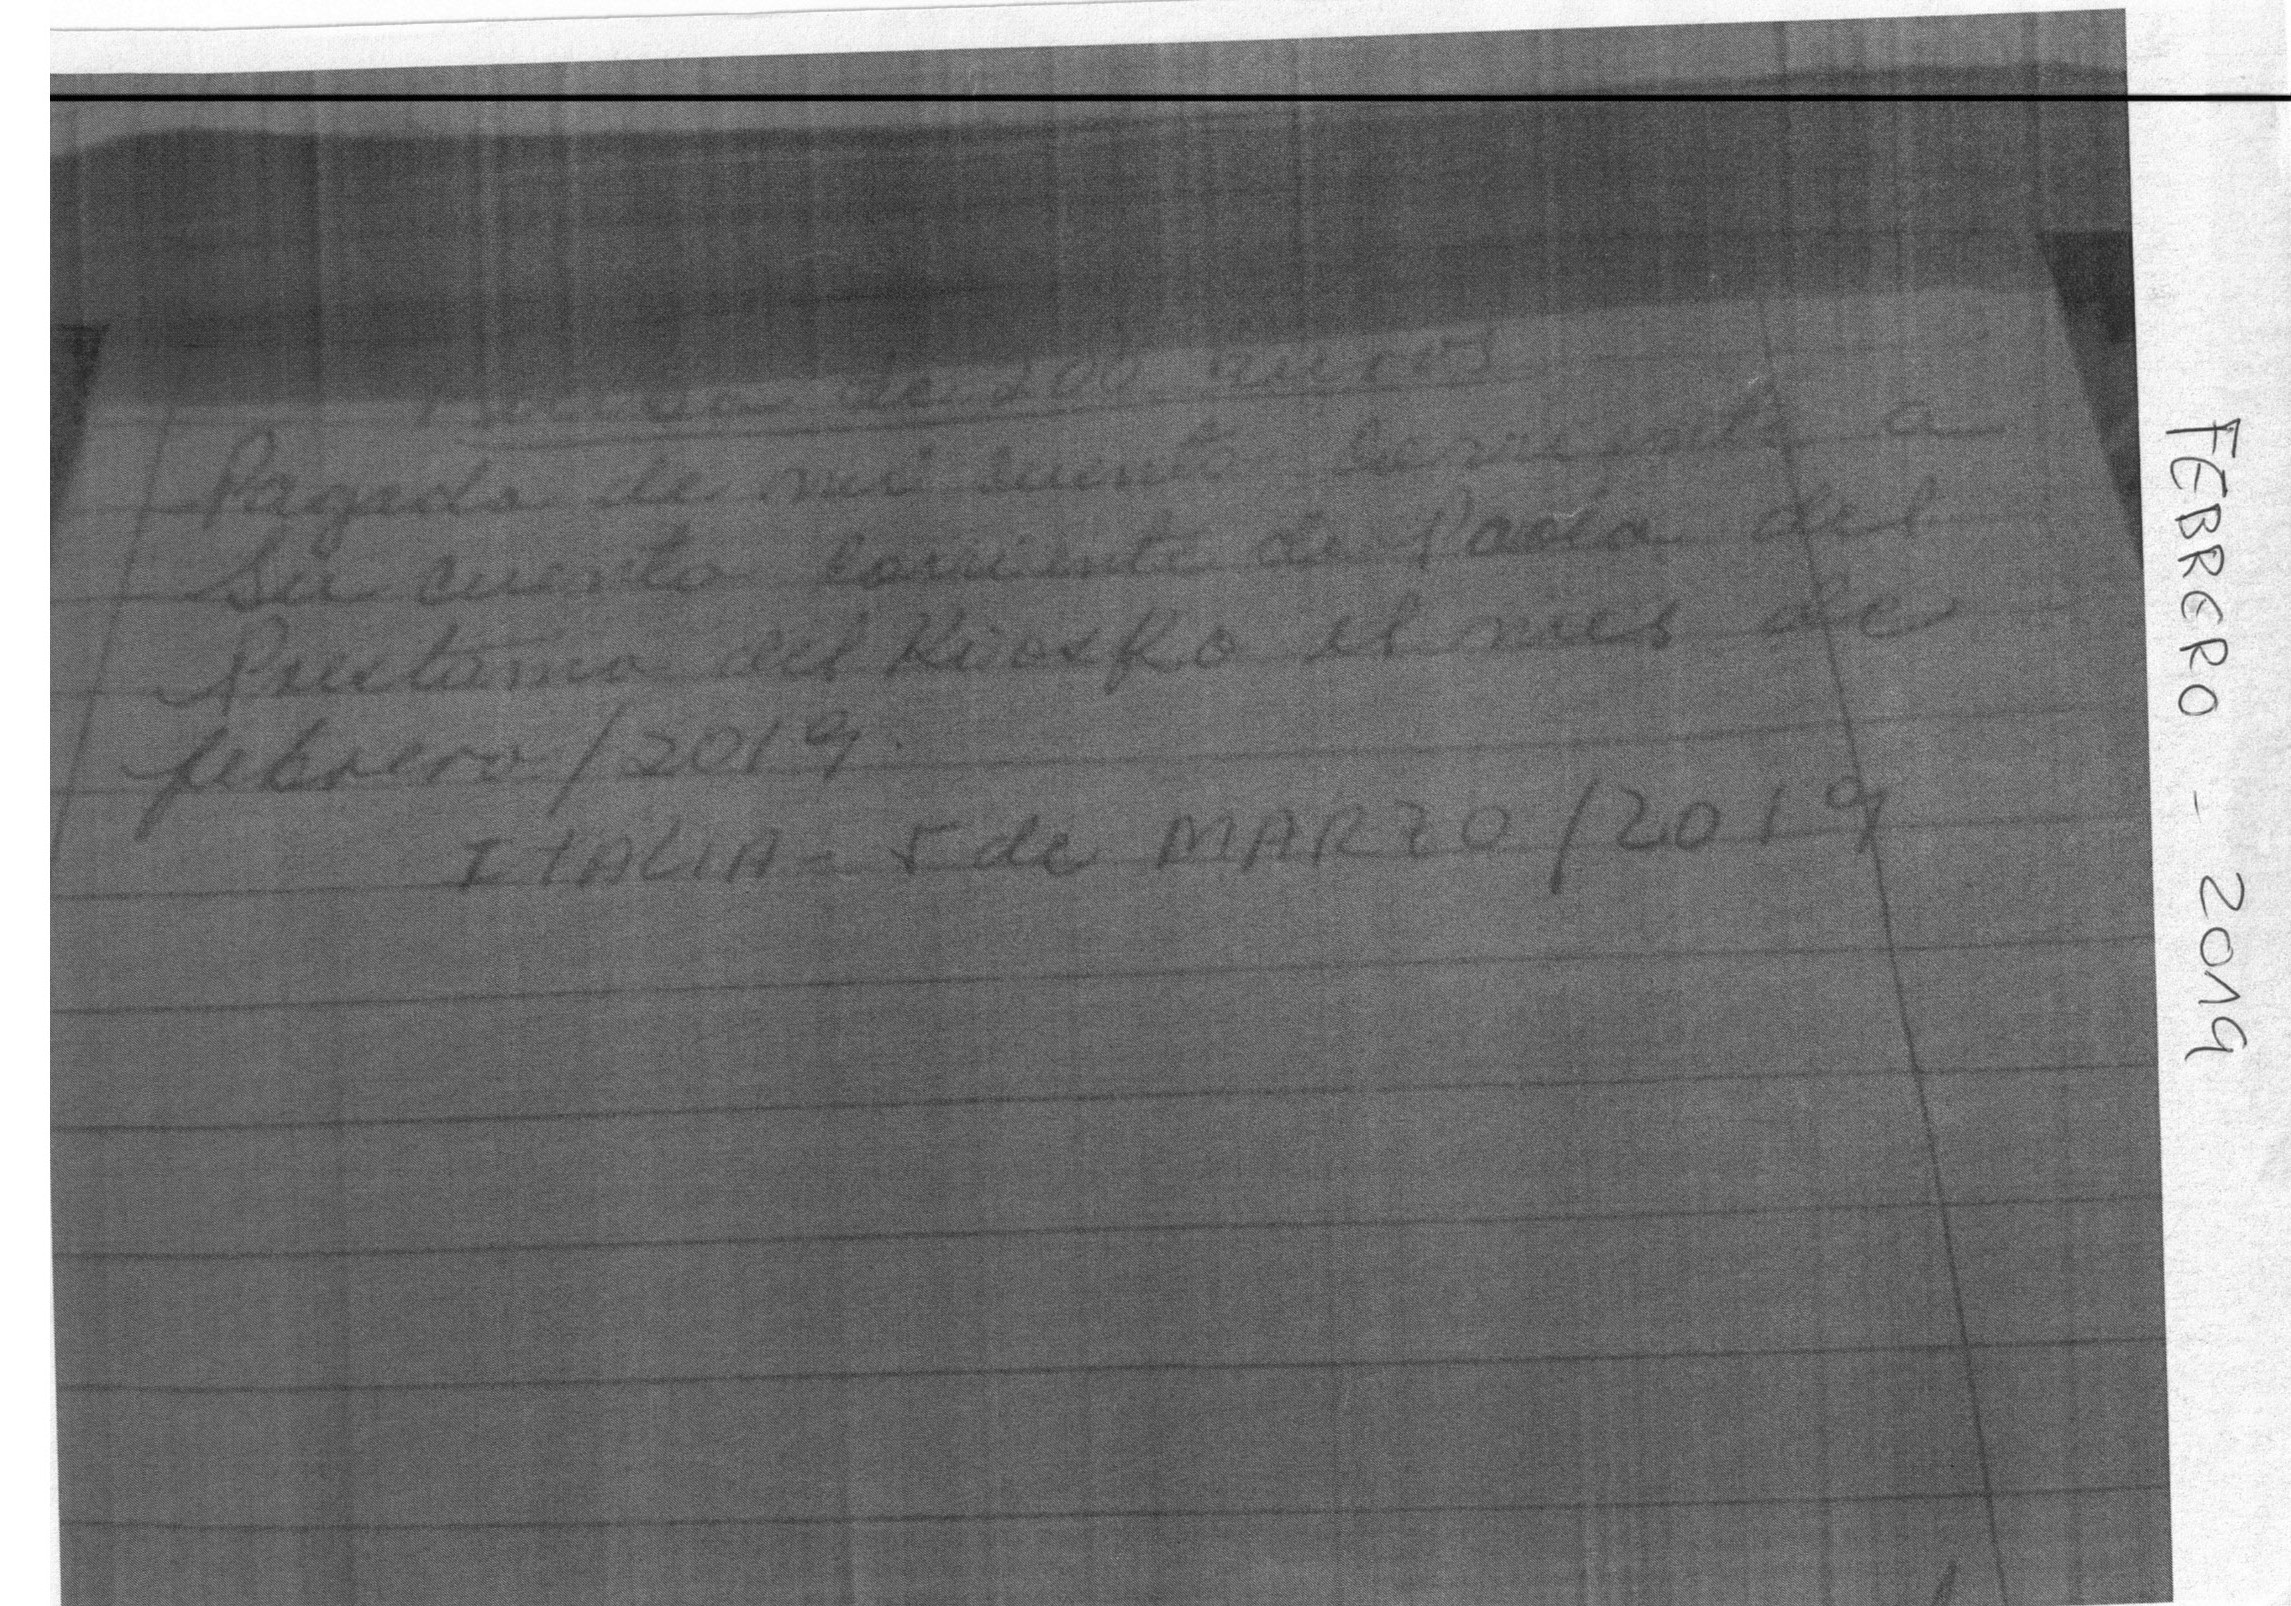 de 200 euros
Pagado de mi cuenta corriente a
Su cuenta corriente de Paola del
Prestamo del Kiosko el mes de
febrero/2019.
ITALIA = 5 de MARZO/2019
FEBRERO - 2019